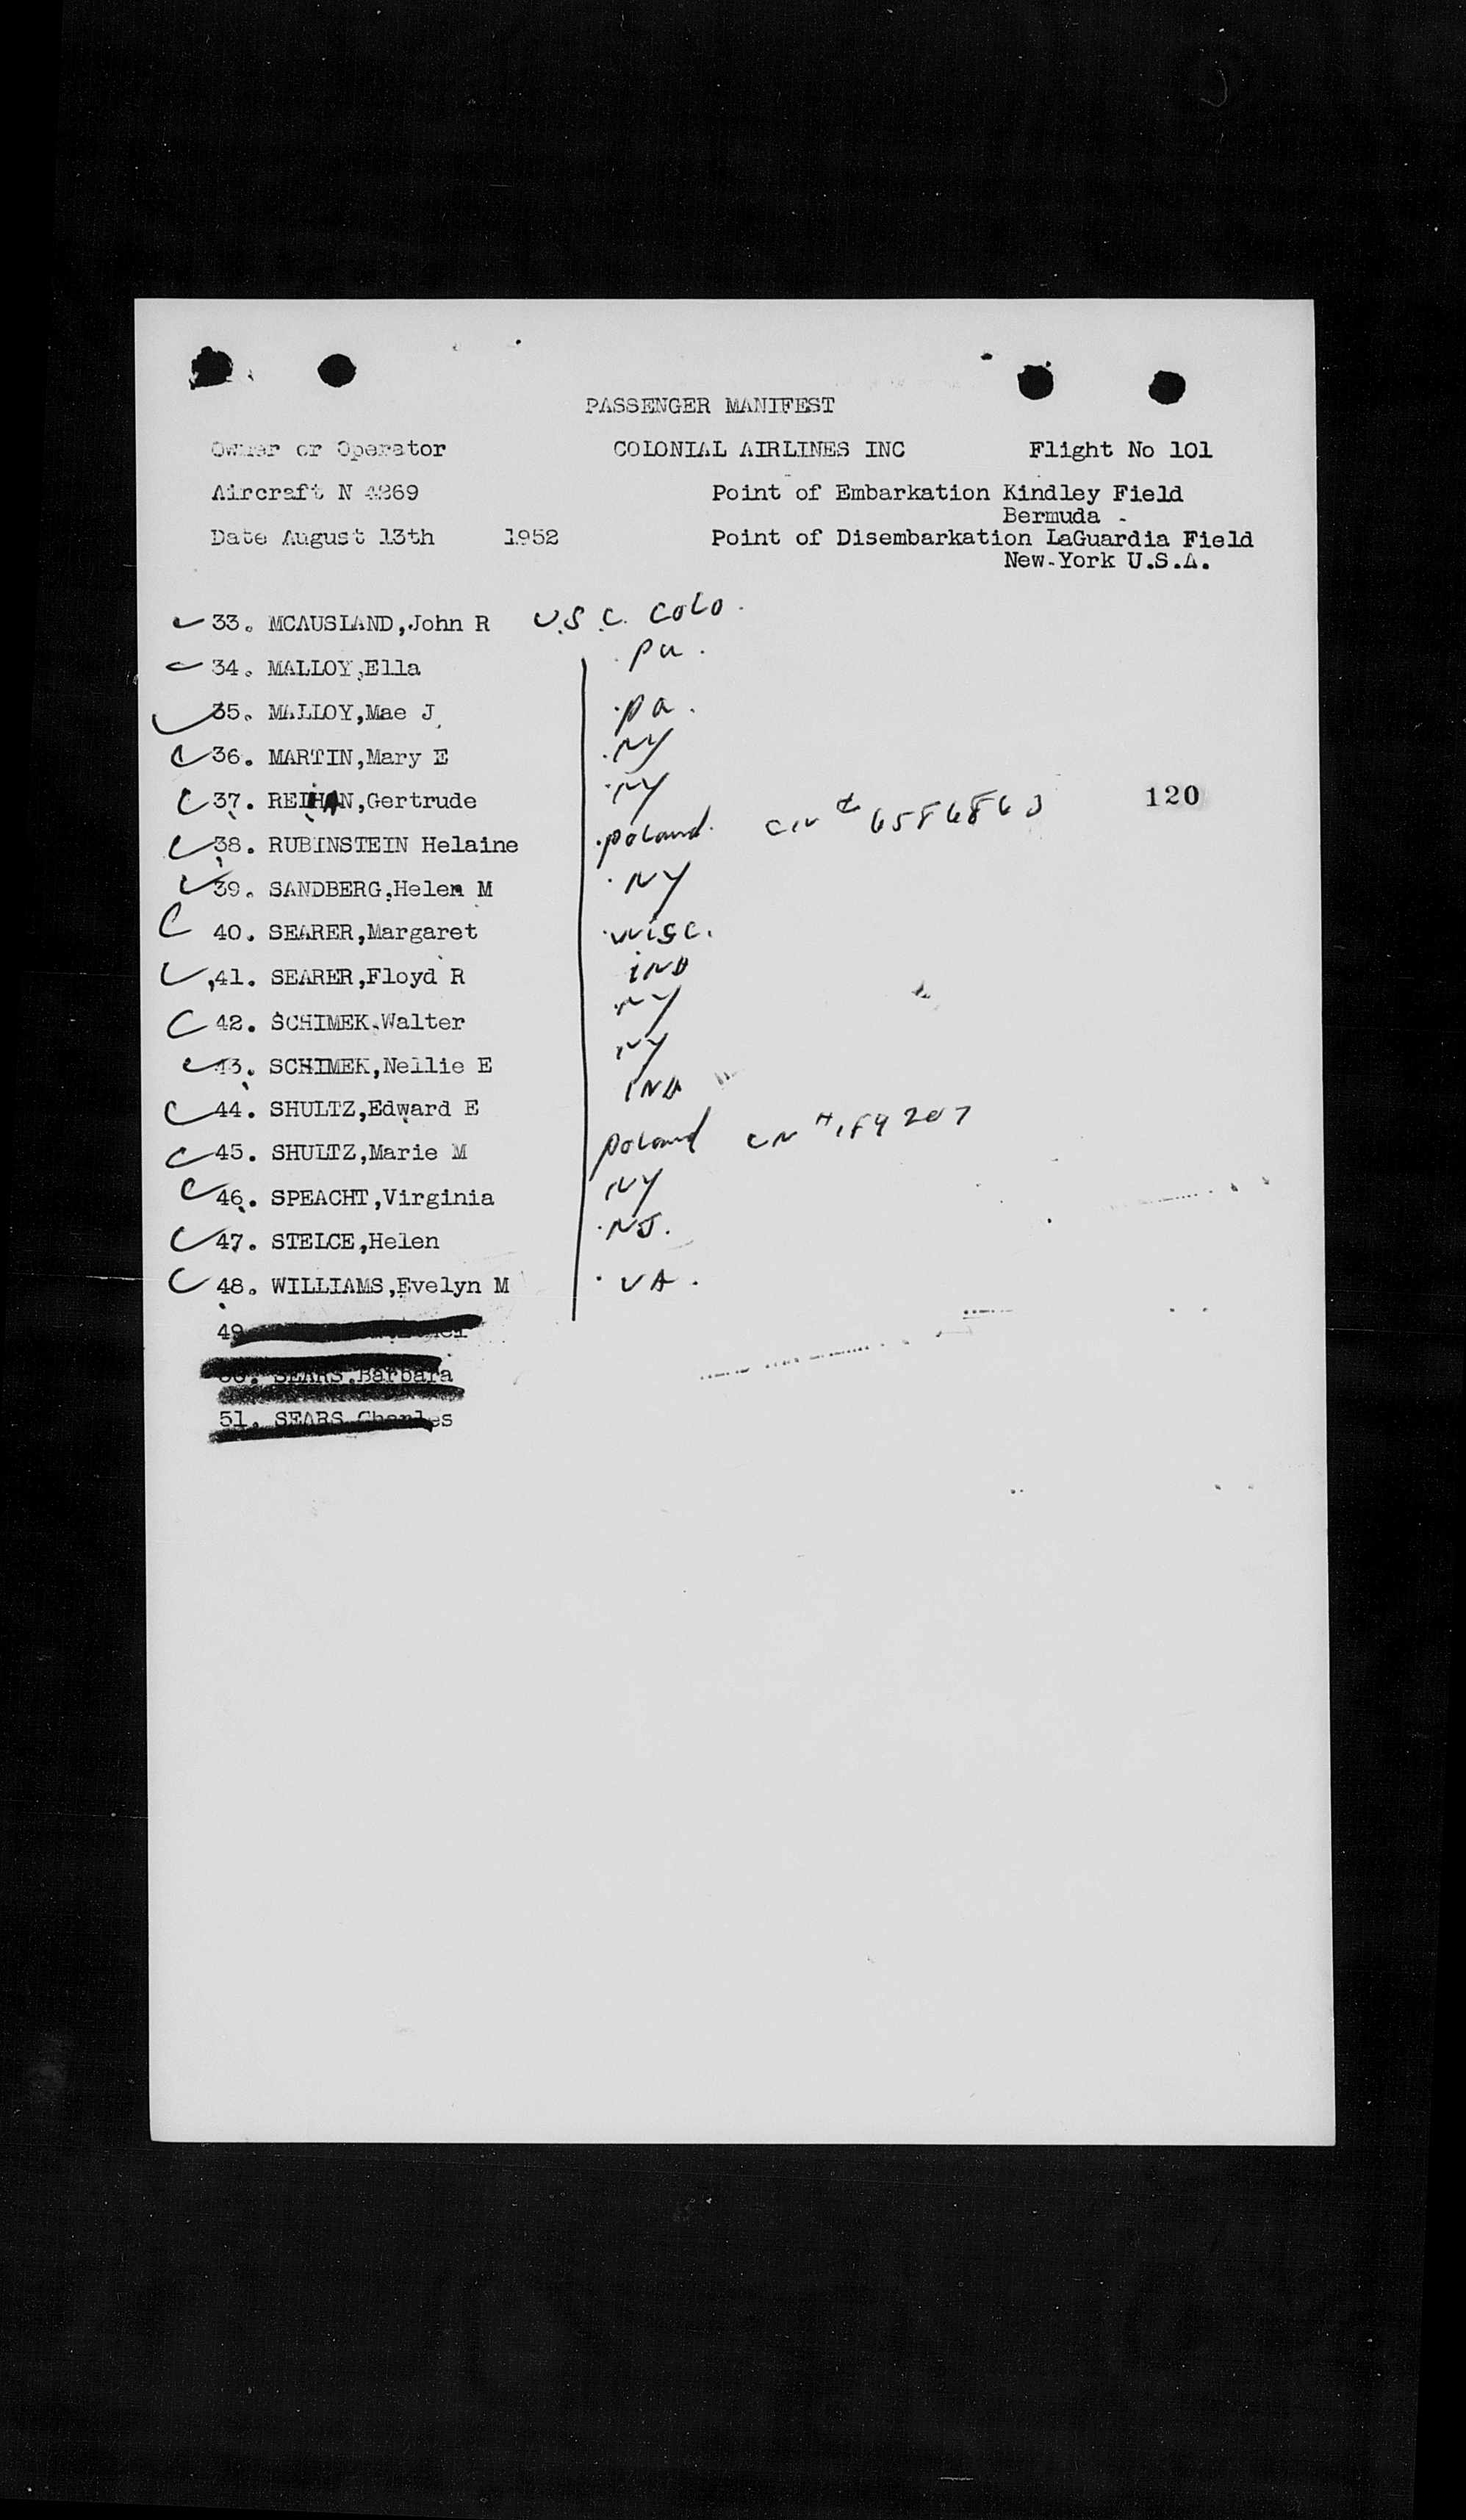 PASSENGER MANIFEST
Owner or Operator COLONIAL AIRLINES INC Flight No 101
Aircraft N 4269 Point of Embarkation Kindley Field
Bermuda -
Date August 13th 1952 Point of Disembarkation LaGuardia Field
New-York U.S.A.
33. MCAUSLAND,John R U.S.C. COLO.
34. MALLOY,Ella Pa.
35. MALLOY,Mae J Pa.
36. MARTIN,Mary E NY
37. REIHAN,Gertrude NY 120
38. RUBINSTEIN Helaine Poland. CN # 6586863
39. SANDBERG,Helen M NY
40. SEARER,Margaret Wisc.
41. SEARER,Floyd R IND
42. SCHIMEK,Walter NY
43. SCHIMEK,Nellie E NY
44. SHULTZ,Edward E IND
45. SHULTZ,Marie M Poland CN # 189207
46. SPEACHT,Virginia NY
47. STELCE,Helen NJ.
48. WILLIAMS,Evelyn M VA.
49
SEARS,Barbara
51. SEARS Charles